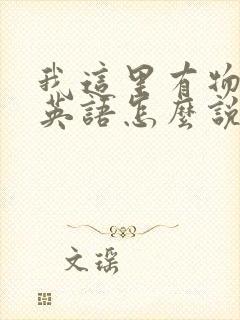 我這里有物
英語怎麼說
文琛